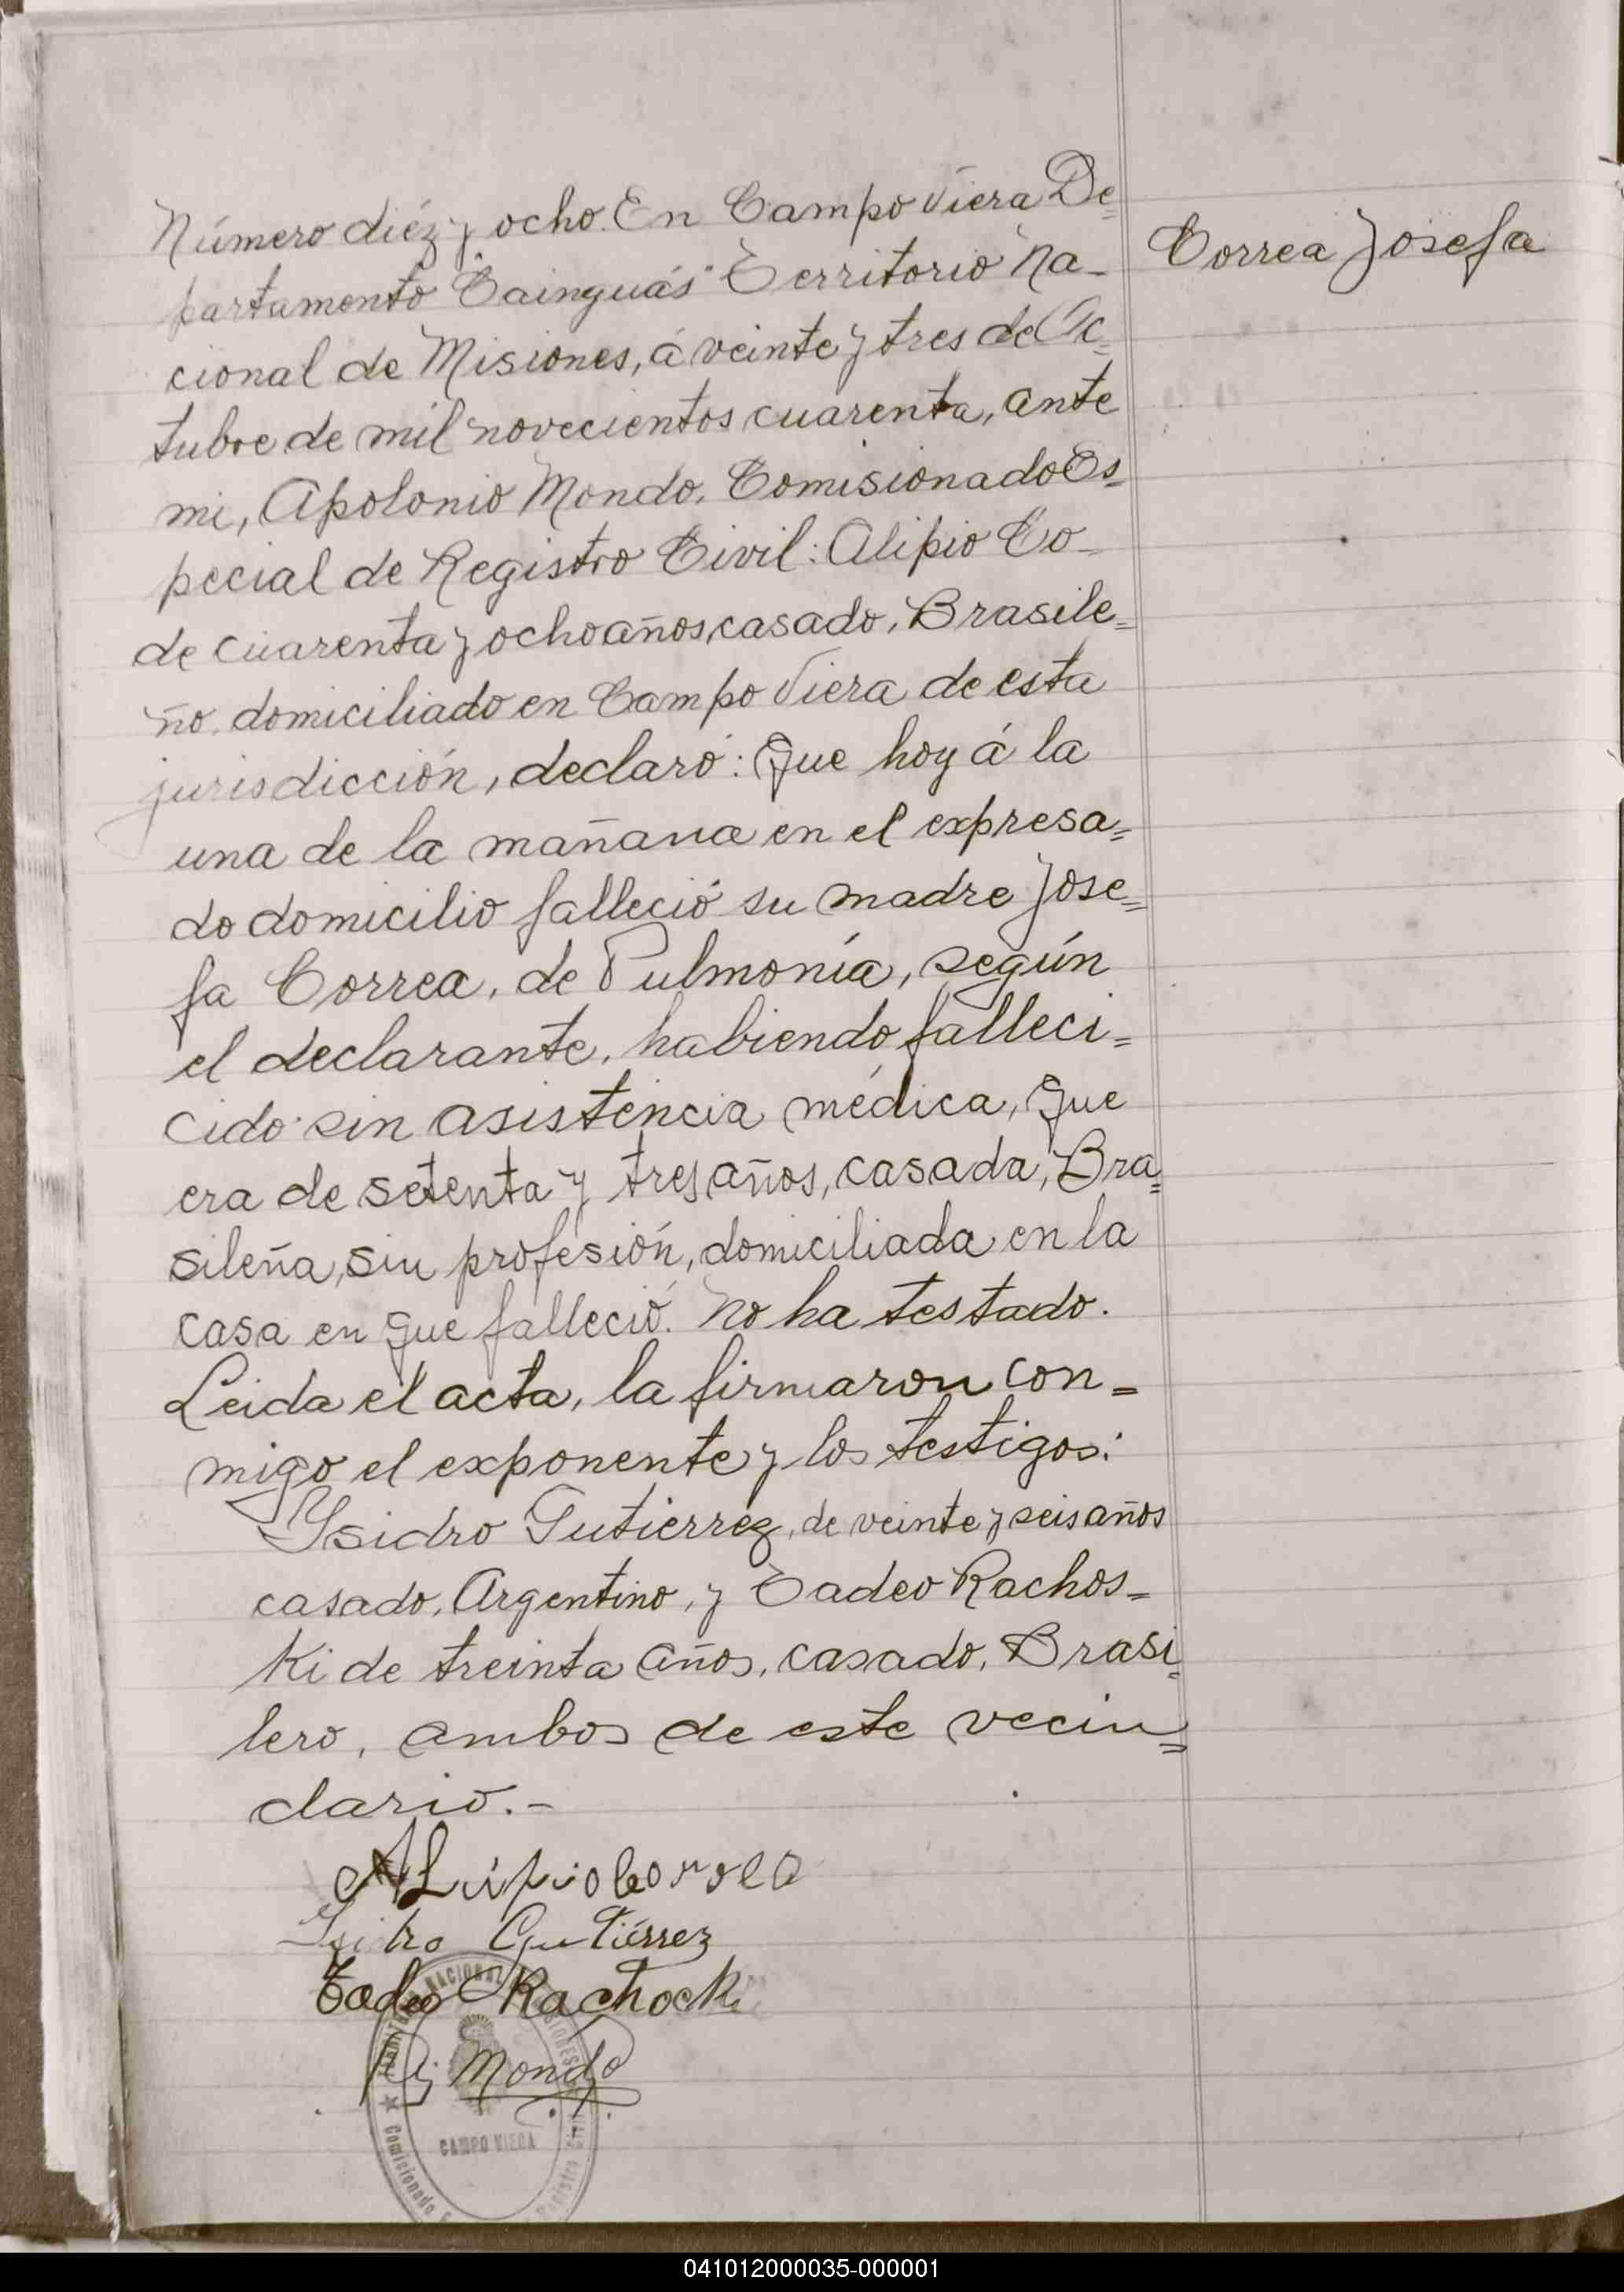 Número diéz y ocho. En Campo Viera De=
Correa Josefa
partamento "Cainguás" Territorio Na-
cional de Misiones, á veinte y tres de Oc=
tubre de mil novecientos cuarenta, ante
mi, Apolonio Mondo, Comisionado Es=
pecial de Registro Civil: Alipio Co-
de cuarenta y ocho años, casado, Brasile=
ño, domiciliado en Campo Viera de esta
jurisdicción, declaró: Que hoy á la
una de la mañana en el expresa=
do domicilio falleció su madre Jose=
fa Correa, de Pulmonía, según
el declarante, habiendo falleci=
cido sin asistencia médica, Que
era de setenta y tres años, casada, Bra=
sileña, sin profesión, domiciliada en la
casa en que falleció. No ha testado.
Leida el acta, la firmaron con=
migo el exponente y los testigos:
Ysidro Gutiérrez, de veinte y seis años
casado, Argentino, y Tadeo Rachos=
Ki de treinta años, casado, Brasi=
lero, ambos de este vecin=
dario.-
ALipio
Isidro Gutiérrez
Tadeo Rachocki
Mondo
NACIONAL
CAMPO VIERA
Comisionado
Registro Civil
041012000035-000001